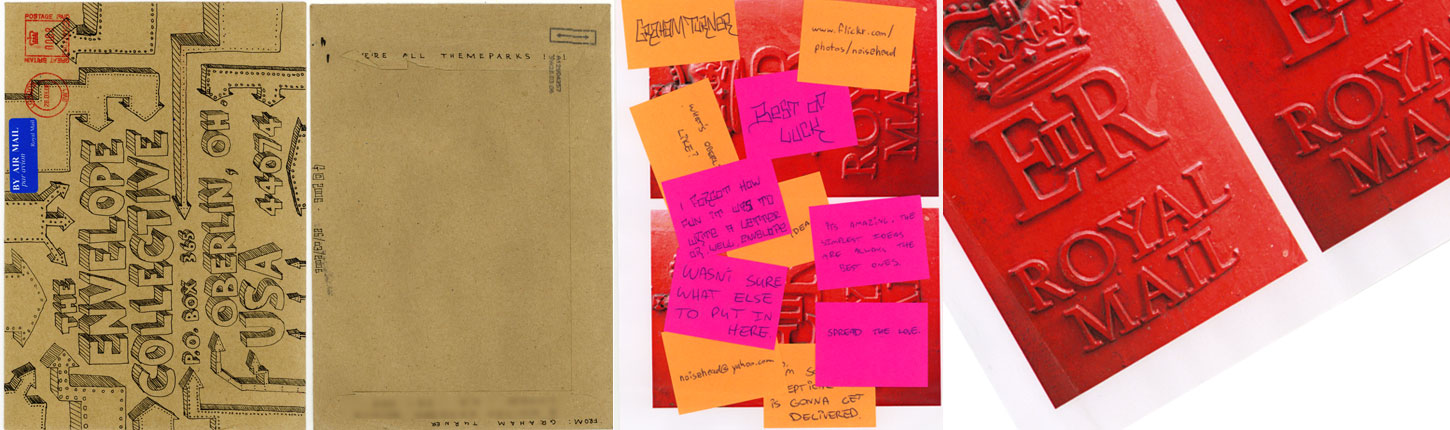 POSTAGE PAID
GREAT BRITAIN
BY AIR MAIL
par avion
Royal Mail
THE
ENVELOPE
COLLECTIVE
P.O. BOX 363
OBERLIN, OH.
44074
USA
ALL THEMEPARKS
FROM: GRAHAM TURNER
GRAHAM TURNER
www.flickr.com/
photos/noisehead
WHAT'S
LIKE?
BEST OF
LUCK
I FORGOT HOW
FUN IT WAS TO
WRITE A LETTER
OR, WELL, ENVELOPE
IDEA
IT'S AMAZING, THE
SIMPLEST IDEAS
ARE ALWAYS THE
BEST ONES.
WASN'T SURE
WHAT ELSE
TO PUT IN
HERE
SPREAD THE LOVE.
noisehead@yahoo.com
IS GONNA GET
DELIVERED.
RO
MAI
E II R
ROYAL
MAIL
ROYAL
MAIL